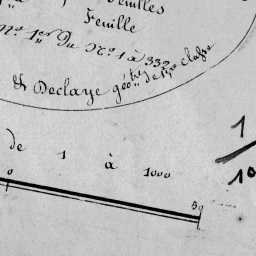 Feuilles
Feuille
N.º 1.er Du N.º 1 à 332
Declaye géo.tre de 1.re classe
de 1 à 1000
0 50
1
10